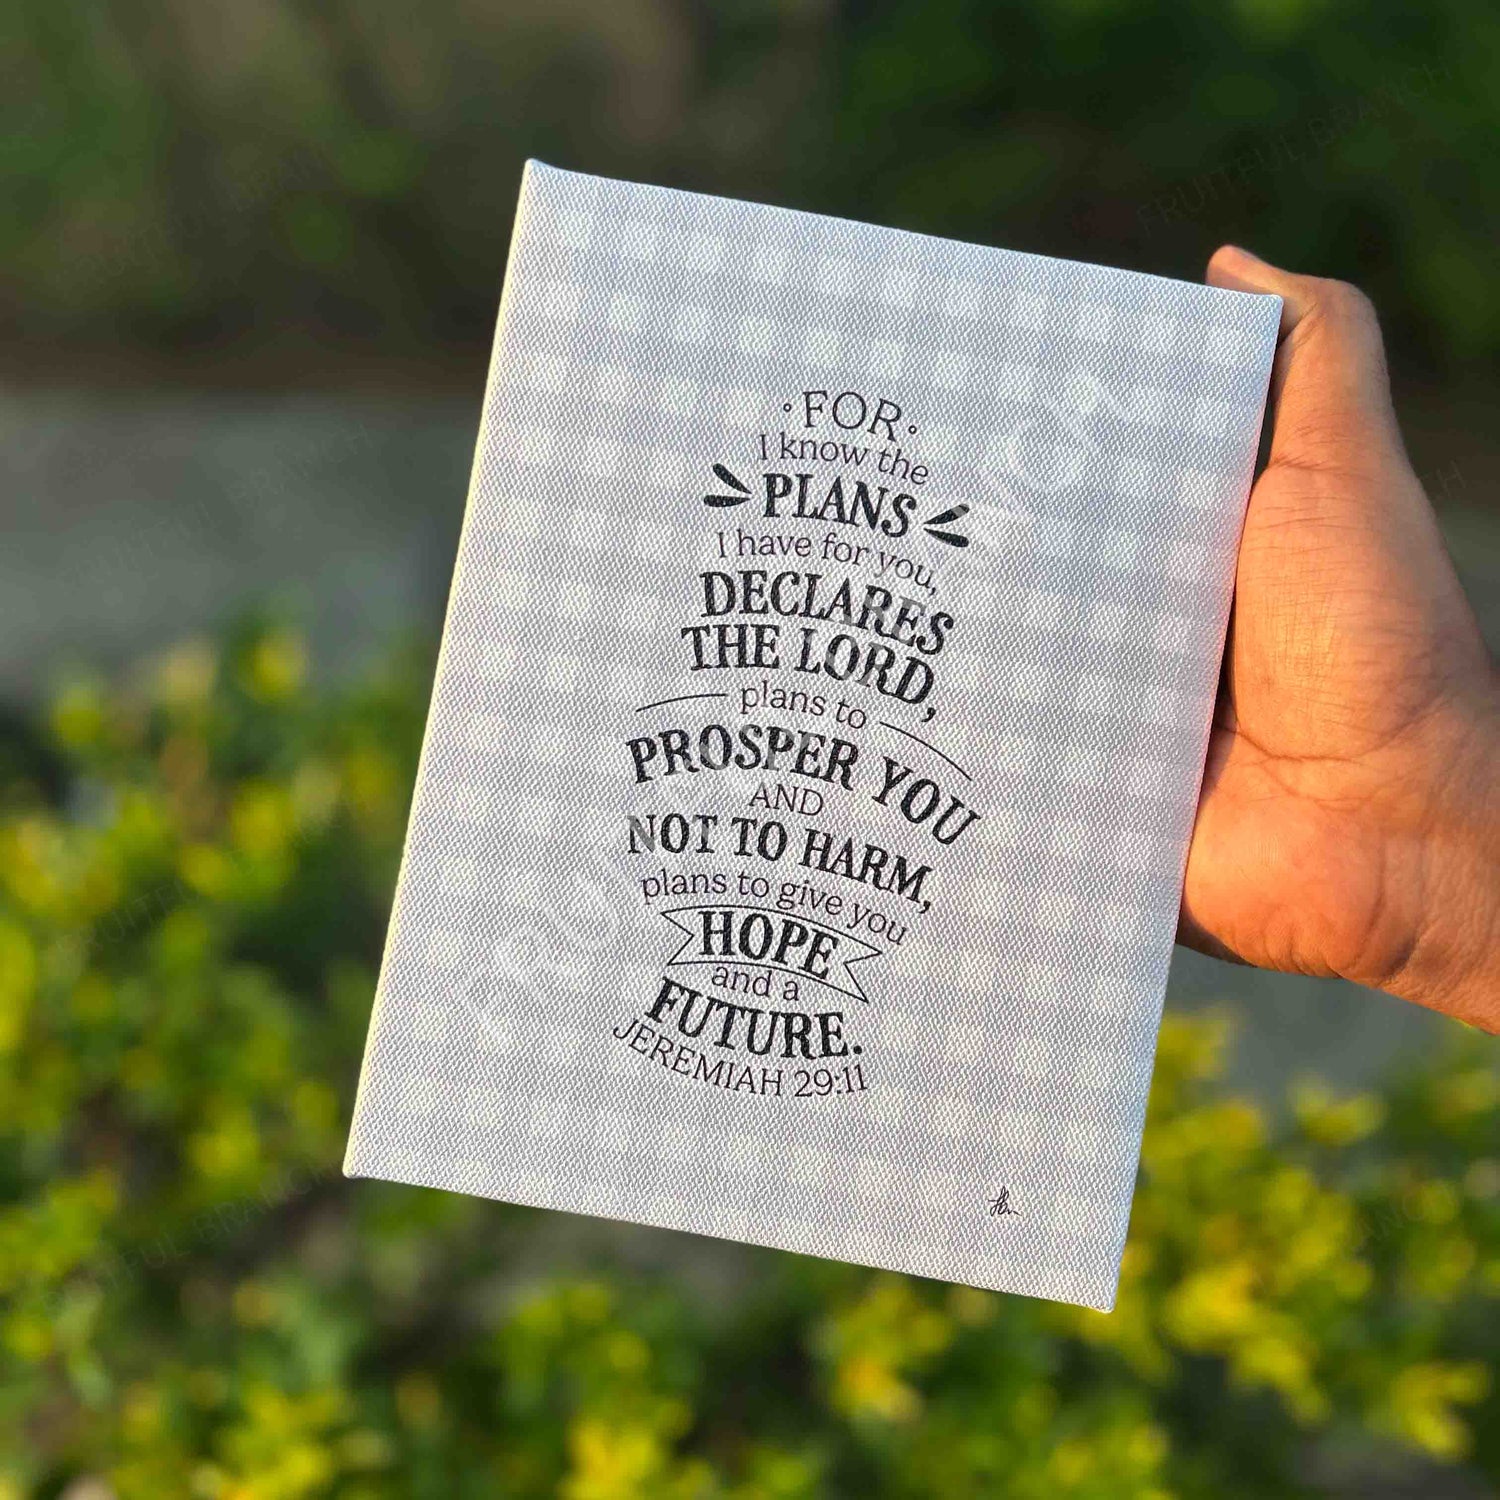 FOR
I know the
PLANS
I have for you,
DECLARES
THE LORD,
plans to
PROSPER YOU
AND
NOT TO HARM,
plans to give you
HOPE
and a
FUTURE.
JEREMIAH 29:11
FRUITFUL BRANCH
FRUITFUL BRANCH
FRUITFUL BRANCH
FRUITFUL BRANCH
FRUITFUL BRANCH